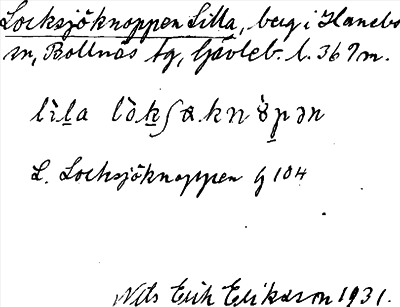 Locksjöknoppen Lilla, berg i Hanebo
sn, Bollnäs tg, Gävleb. l. 367 m.
lìla lòkʃɷknɞ̀pən
L. Locksjöknoppen g 104
Nils Erik Erikson 1931.